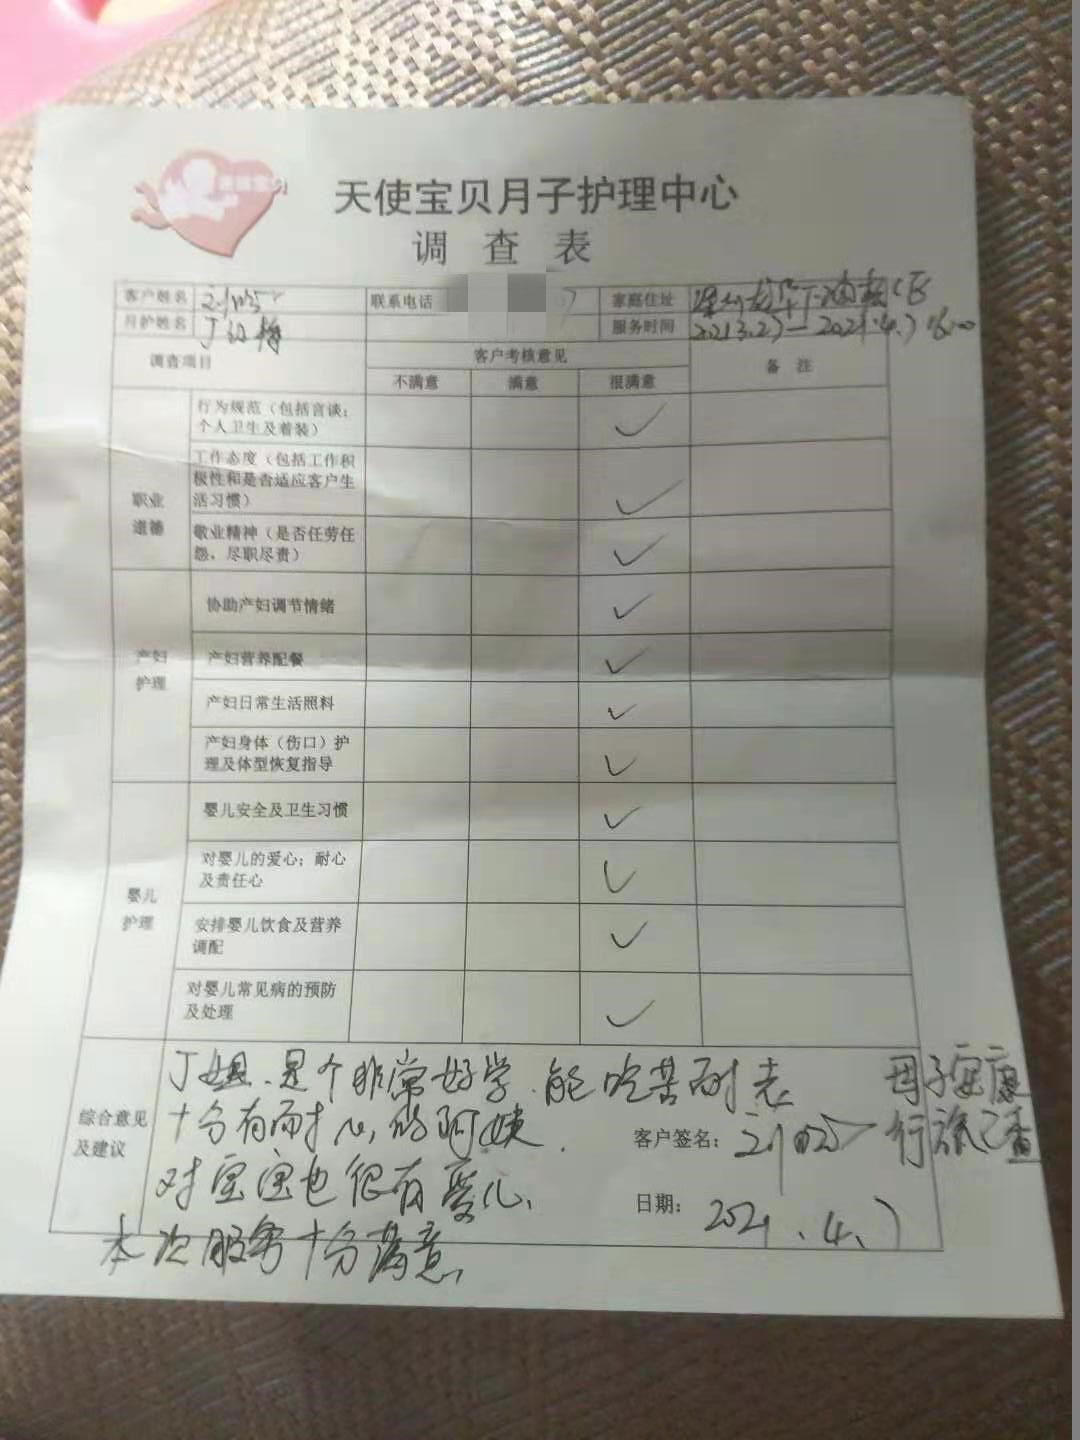 天使宝贝月子护理中心
调 查 表
客户姓名 联系电话 家庭住址
月护姓名 服务时间 2021.3.27—2021.4.7
调查项目 客户考核意见 备 注
不满意 满意 很满意
职业
道德
行为规范（包括言谈；
个人卫生及着装）
工作态度（包括工作积
极性和是否适应客户生
活习惯）
敬业精神（是否任劳任
怨，尽职尽责）
产妇
护理
协助产妇调节情绪
产妇营养配餐
产妇日常生活照料
产妇身体（伤口）护
理及体型恢复指导
婴儿
护理
婴儿安全及卫生习惯
对婴儿的爱心；耐心
及责任心
安排婴儿饮食及营养
调配
对婴儿常见病的预防
及处理
综合意见
及建议
丁姐、是个非常好学、能吃苦耐劳
十分有耐心、的阿姨．
对宝宝也很有爱心、
本次服务十分满意、
母子安康
行旅已查
客户签名：
日期： 2021.4.7